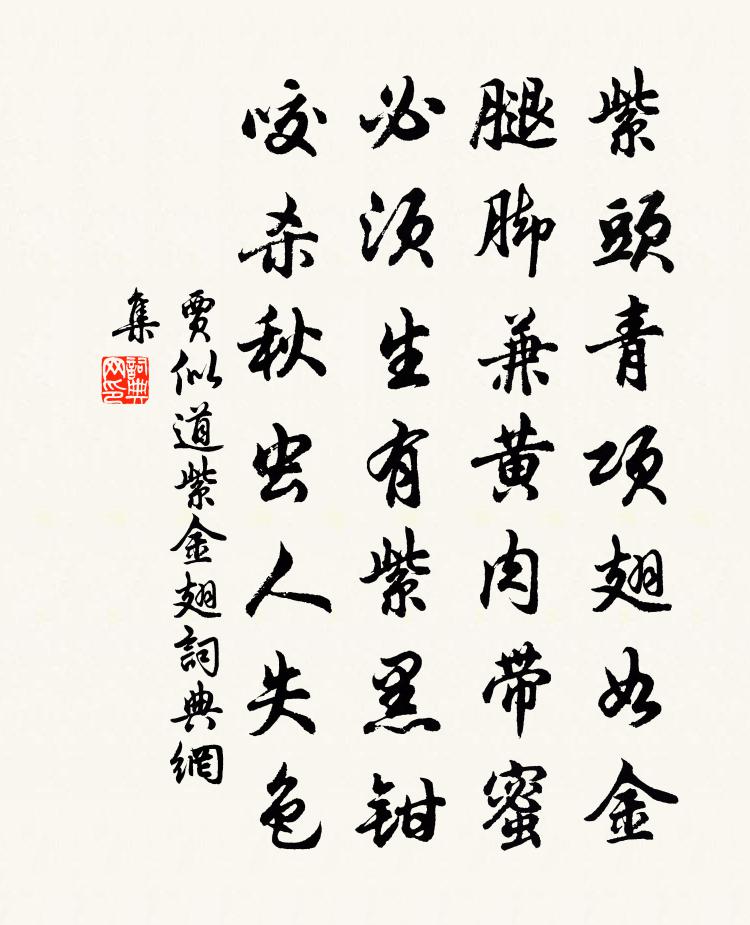 紫頭青项翅如金
腿脚兼黄肉带蜜
必须生有紫黑钳
咬杀秋虫人失色
賈似道紫金翅詞典網
集
詞典
网印